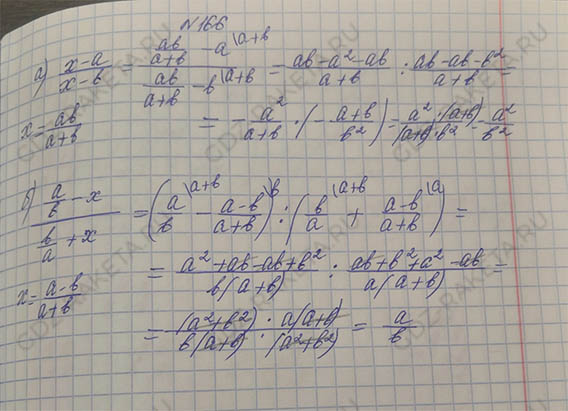 №166
а) \frac{x-a}{x-b} = \frac{\frac{ab}{a+b} - a^{\backslash a+b}}{\frac{ab}{a+b} - b^{\backslash a+b}} = \frac{ab-a^2-ab}{a+b} : \frac{ab-ab-b^2}{a+b} =
x = \frac{ab}{a+b} = -\frac{a^2}{a+b} \cdot \left(-\frac{a+b}{b^2}\right) = \frac{a^2 \cdot (a+b)}{(a+b) \cdot b^2} = \frac{a^2}{b^2}
б) \frac{\frac{a}{b} - x}{\frac{b}{a} + x} = \left(\frac{a}{b}^{\backslash a+b} - \frac{a-b}{a+b}^{\backslash b}\right) : \left(\frac{b}{a}^{\backslash a+b} + \frac{a-b}{a+b}^{\backslash a}\right) =
x = \frac{a-b}{a+b} = \frac{a^2+ab-ab+b^2}{b(a+b)} : \frac{ab+b^2+a^2-ab}{a(a+b)} =
= \frac{(a^2+b^2) \cdot a(a+b)}{b(a+b) \cdot (a^2+b^2)} = \frac{a}{b}
GDZ-RAKETA.RU